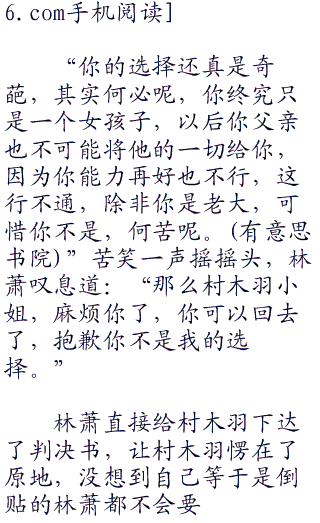 6.com手机阅读]
“你的选择还真是奇
葩，其实何必呢，你终究只
是一个女孩子，以后你父亲
也不可能将他的一切给你，
因为你能力再好也不行，这
行不通，除非你是老大，可
惜你不是，何苦呢。(有意思
书院)”苦笑一声摇摇头，林
萧叹息道：“那么村木羽小
姐，麻烦你了，你可以回去
了，抱歉你不是我的选
择。”
林萧直接给村木羽下达
了判决书，让村木羽愣在了
原地，没想到自己等于是倒
贴的林萧都不会要